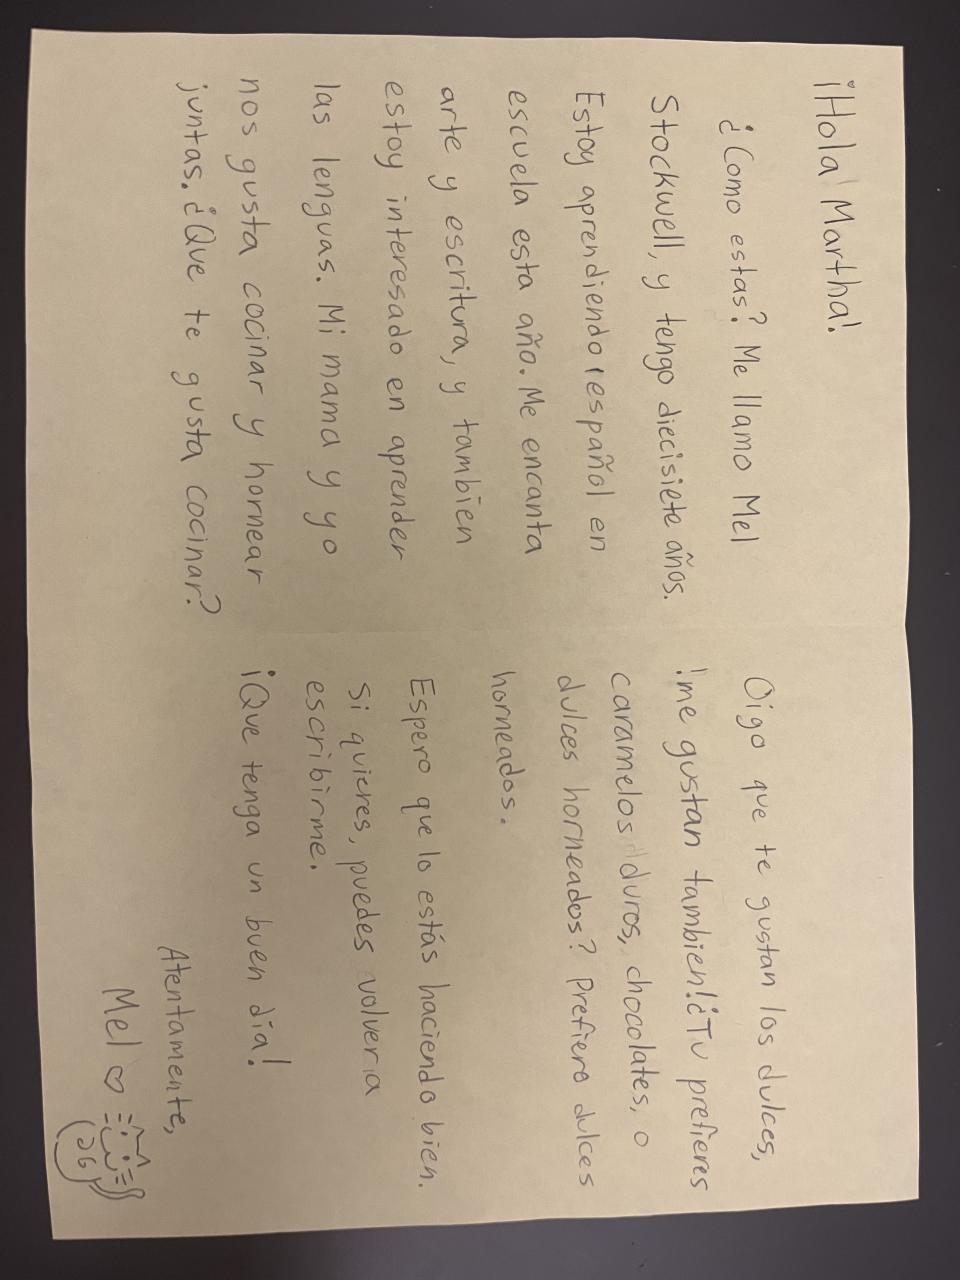 ¡Hola Martha!
¿Como estas? Me llamo Mel
Stockwell, y tengo diecisiete años.
Estoy aprendiendo español en
escuela esta año. Me encanta
arte y escritura, y tambien
estoy interesado en aprender
las lenguas. Mi mama y yo
nos gusta cocinar y hornear
juntas. ¿Que te gusta cocinar?
Oigo que te gustan los dulces,
¡me gustan tambien! ¿Tu prefieres
caramelos duros, chocolates, o
dulces horneados? Prefiero dulces
horneados.
Espero que lo estás haciendo bien.
Si quieres, puedes volver a
escribirme.
¡Que tenga un buen día!
Atentamente,
Mel ♡